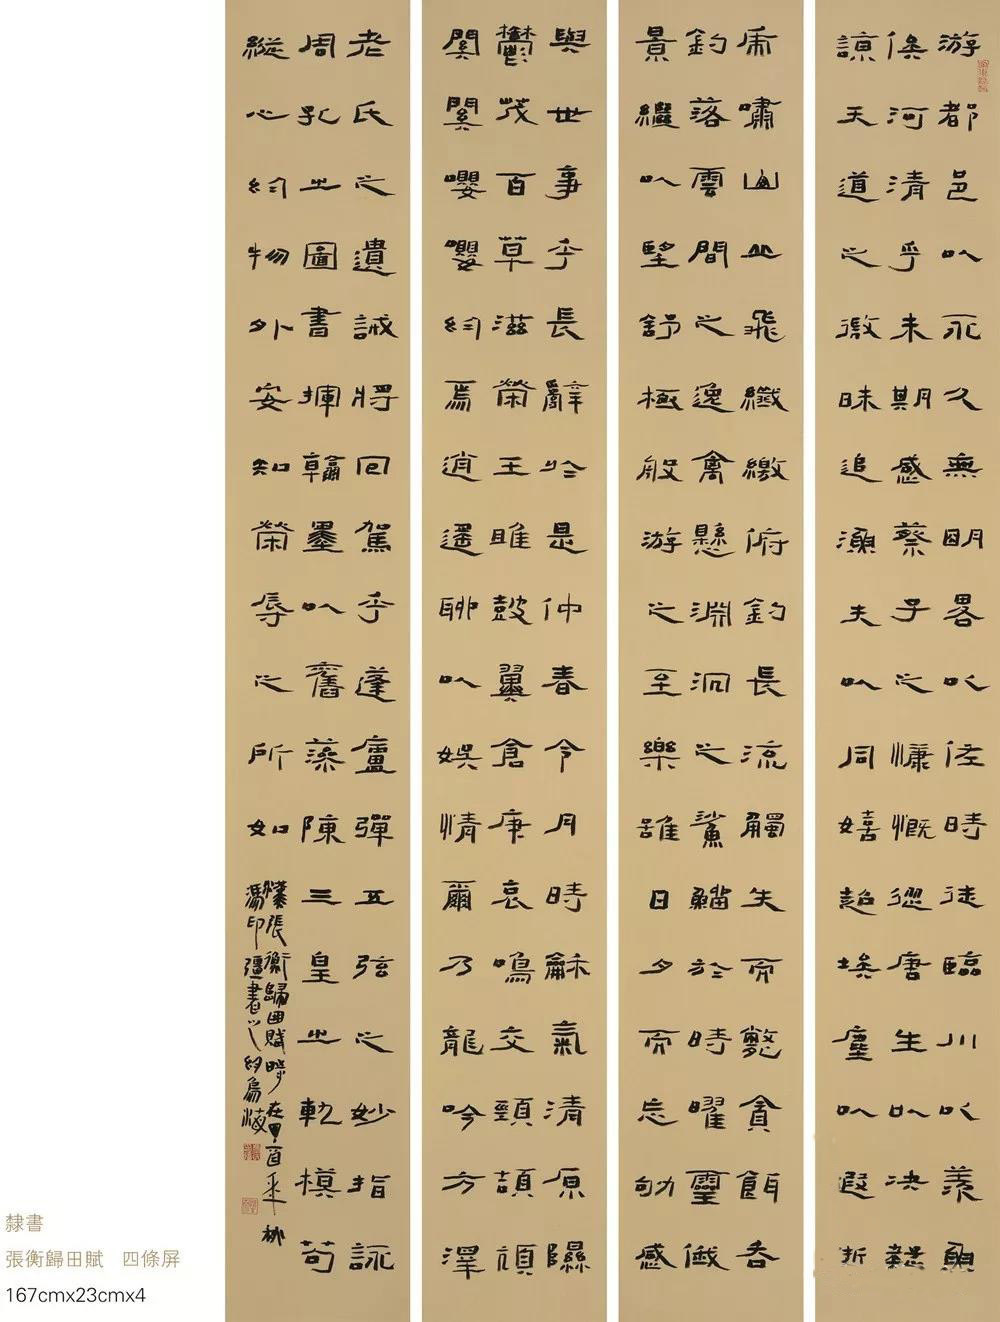 游都邑以永久無明畧以佐時徒臨川以羨魚
俟河清乎未期感蔡子之慷慨從唐生以決疑
諒天道之微昧追漁夫以同嬉超埃塵以遐逝
虎嘯山丘飛纖繳俯釣長流觸矢而斃貪餌吞
釣落雲間之逸禽懸淵沉之鯊鰡於時曜靈俄
景繼以望舒極般游之至樂雖日夕而忘劬感
與世事乎長辭於是仲春令月時龢氣清原隰
鬱茂百草滋榮王雎鼓翼倉庚哀鳴交頸頡頏
關關嚶嚶於焉逍遥聊以娛情爾乃龍吟方澤
老氏之遺誡將回駕乎蓬廬彈五弦之妙指詠
周孔之圖書揮翰墨以奮藻陳三皇之軌模苟
縱心於物外安知榮辱之所如
漢張衡歸田賦時在丁酉年秋
馮印彊書之於烏海
隸書
張衡歸田賦 四條屏
167cmx23cmx4